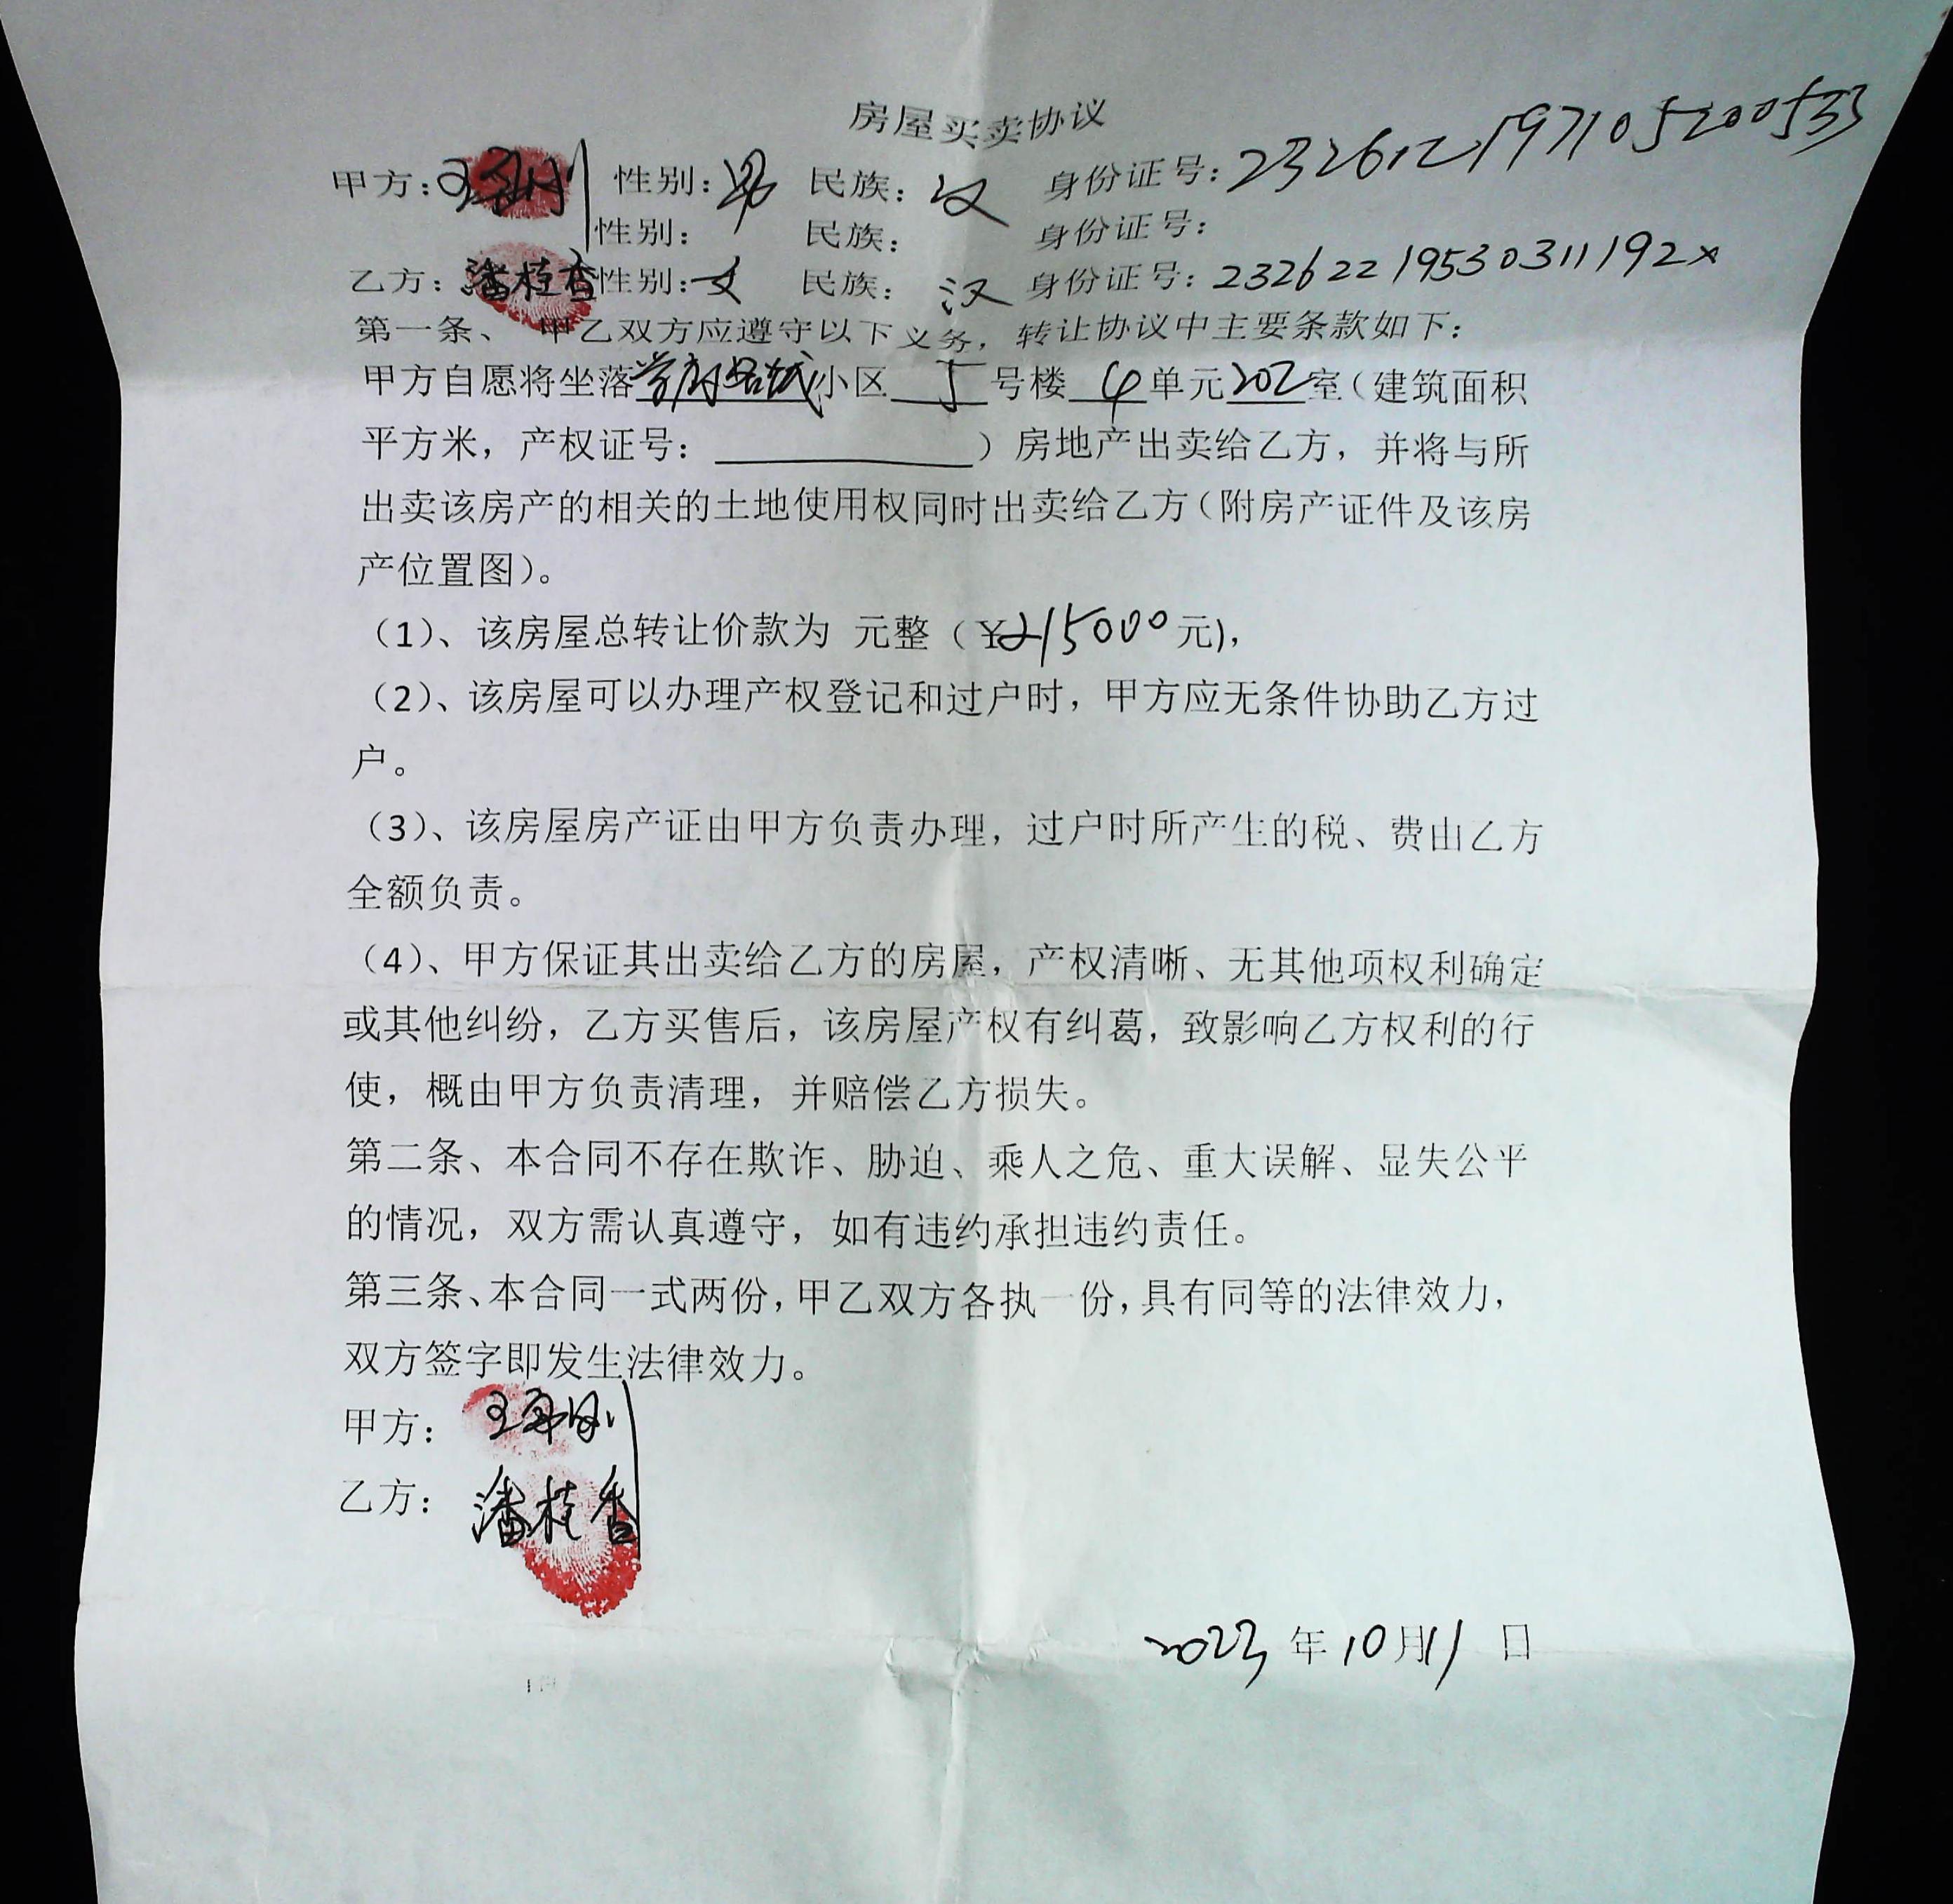 房屋买卖协议
甲方： 性别：男 民族：汉 身份证号：232612197105200533
性别： 民族： 身份证号：
乙方：潘桂香 性别：女 民族：汉 身份证号：23262219530311192x
第一条、 甲乙双方应遵守以下义务，转让协议中主要条款如下：
甲方自愿将坐落学府名城小区 5 号楼 4 单元202室（建筑面积
平方米，产权证号：____________）房地产出卖给乙方，并将与所
出卖该房产的相关的土地使用权同时出卖给乙方（附房产证件及该房
产位置图）。
（1）、该房屋总转让价款为 元整（¥215000元），
（2）、该房屋可以办理产权登记和过户时，甲方应无条件协助乙方过
户。
（3）、该房屋房产证由甲方负责办理，过户时所产生的税、费由乙方
全额负责。
（4）、甲方保证其出卖给乙方的房屋，产权清晰、无其他项权利确定
或其他纠纷，乙方买售后，该房屋产权有纠葛，致影响乙方权利的行
使，概由甲方负责清理，并赔偿乙方损失。
第二条、本合同不存在欺诈、胁迫、乘人之危、重大误解、显失公平
的情况，双方需认真遵守，如有违约承担违约责任。
第三条、本合同一式两份，甲乙双方各执一份，具有同等的法律效力，
双方签字即发生法律效力。
甲方：
乙方：潘桂香
2023 年 10 月 11 日